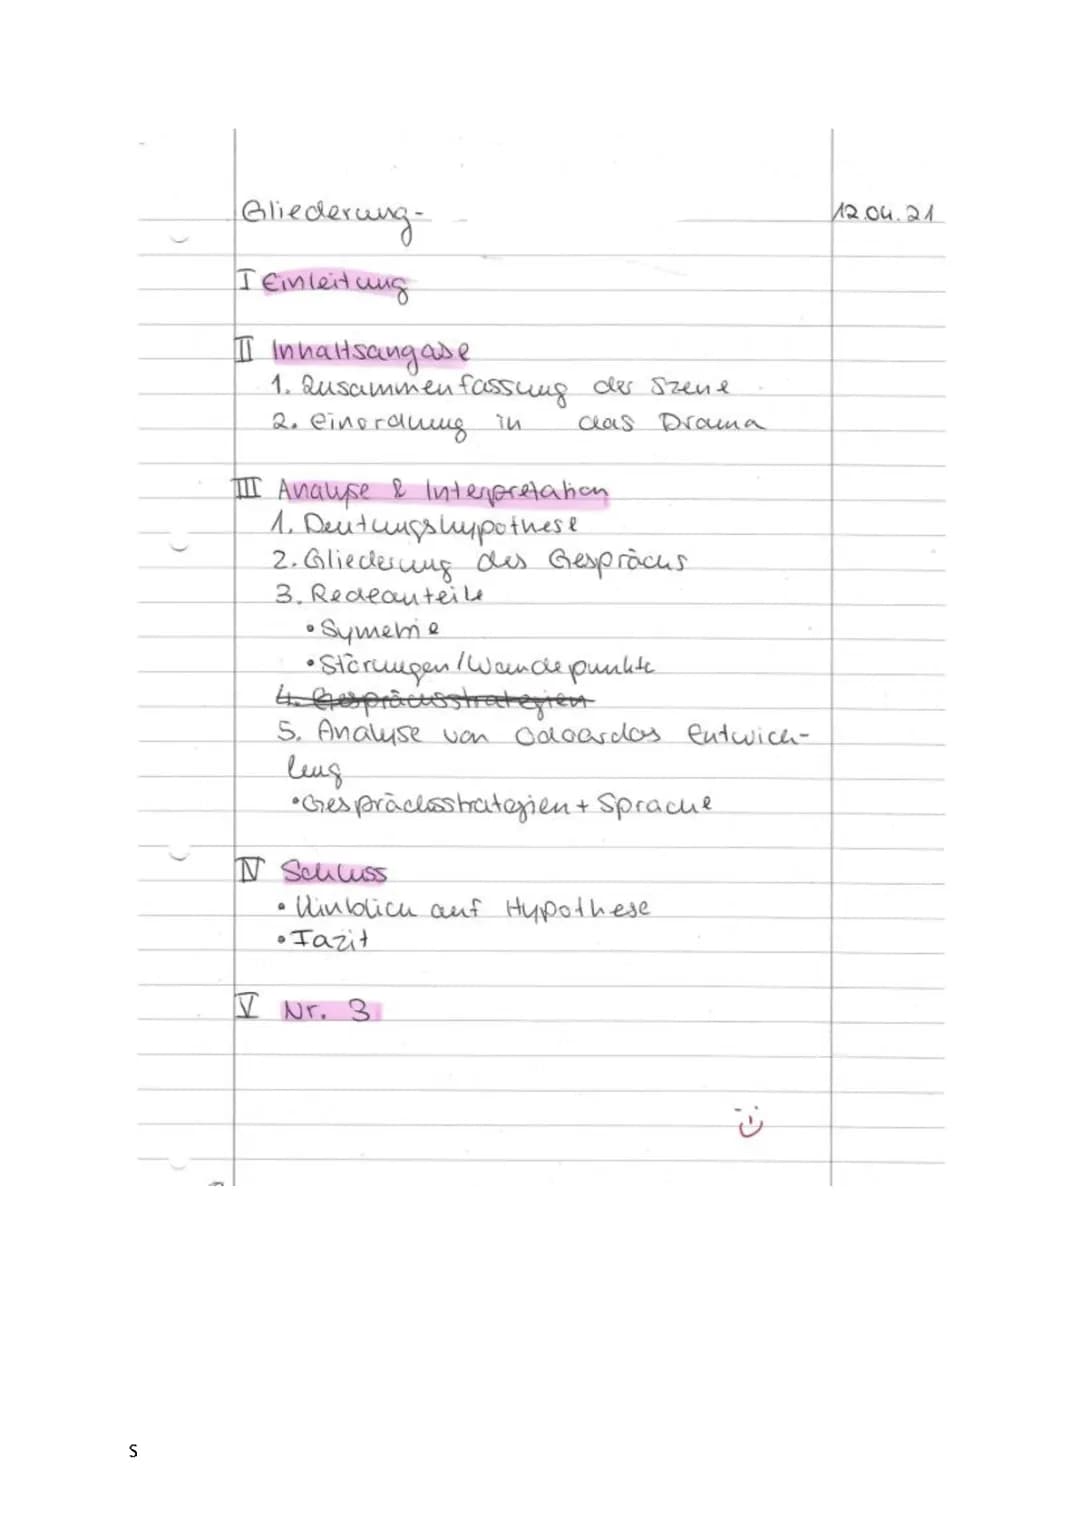 Gliederung- 12.04.21
I Einleitung
II Inhaltsangabe
1. Zusammenfassung der Szene
2. Einordnung in das Drama
III Analyse & Interpretation
1. Deutungshypothese
2. Gliederung des Gesprächs
3. Redeanteile
• Symetrie
• Störungen/Wendepunkte
4. Gesprächsstrategien
5. Analyse von Odoardos Entwick-
lung
• Gesprächsstrategien + Sprache
IV Schluss
• Hinblick auf Hypothese
• Fazit
V Nr. 3
S